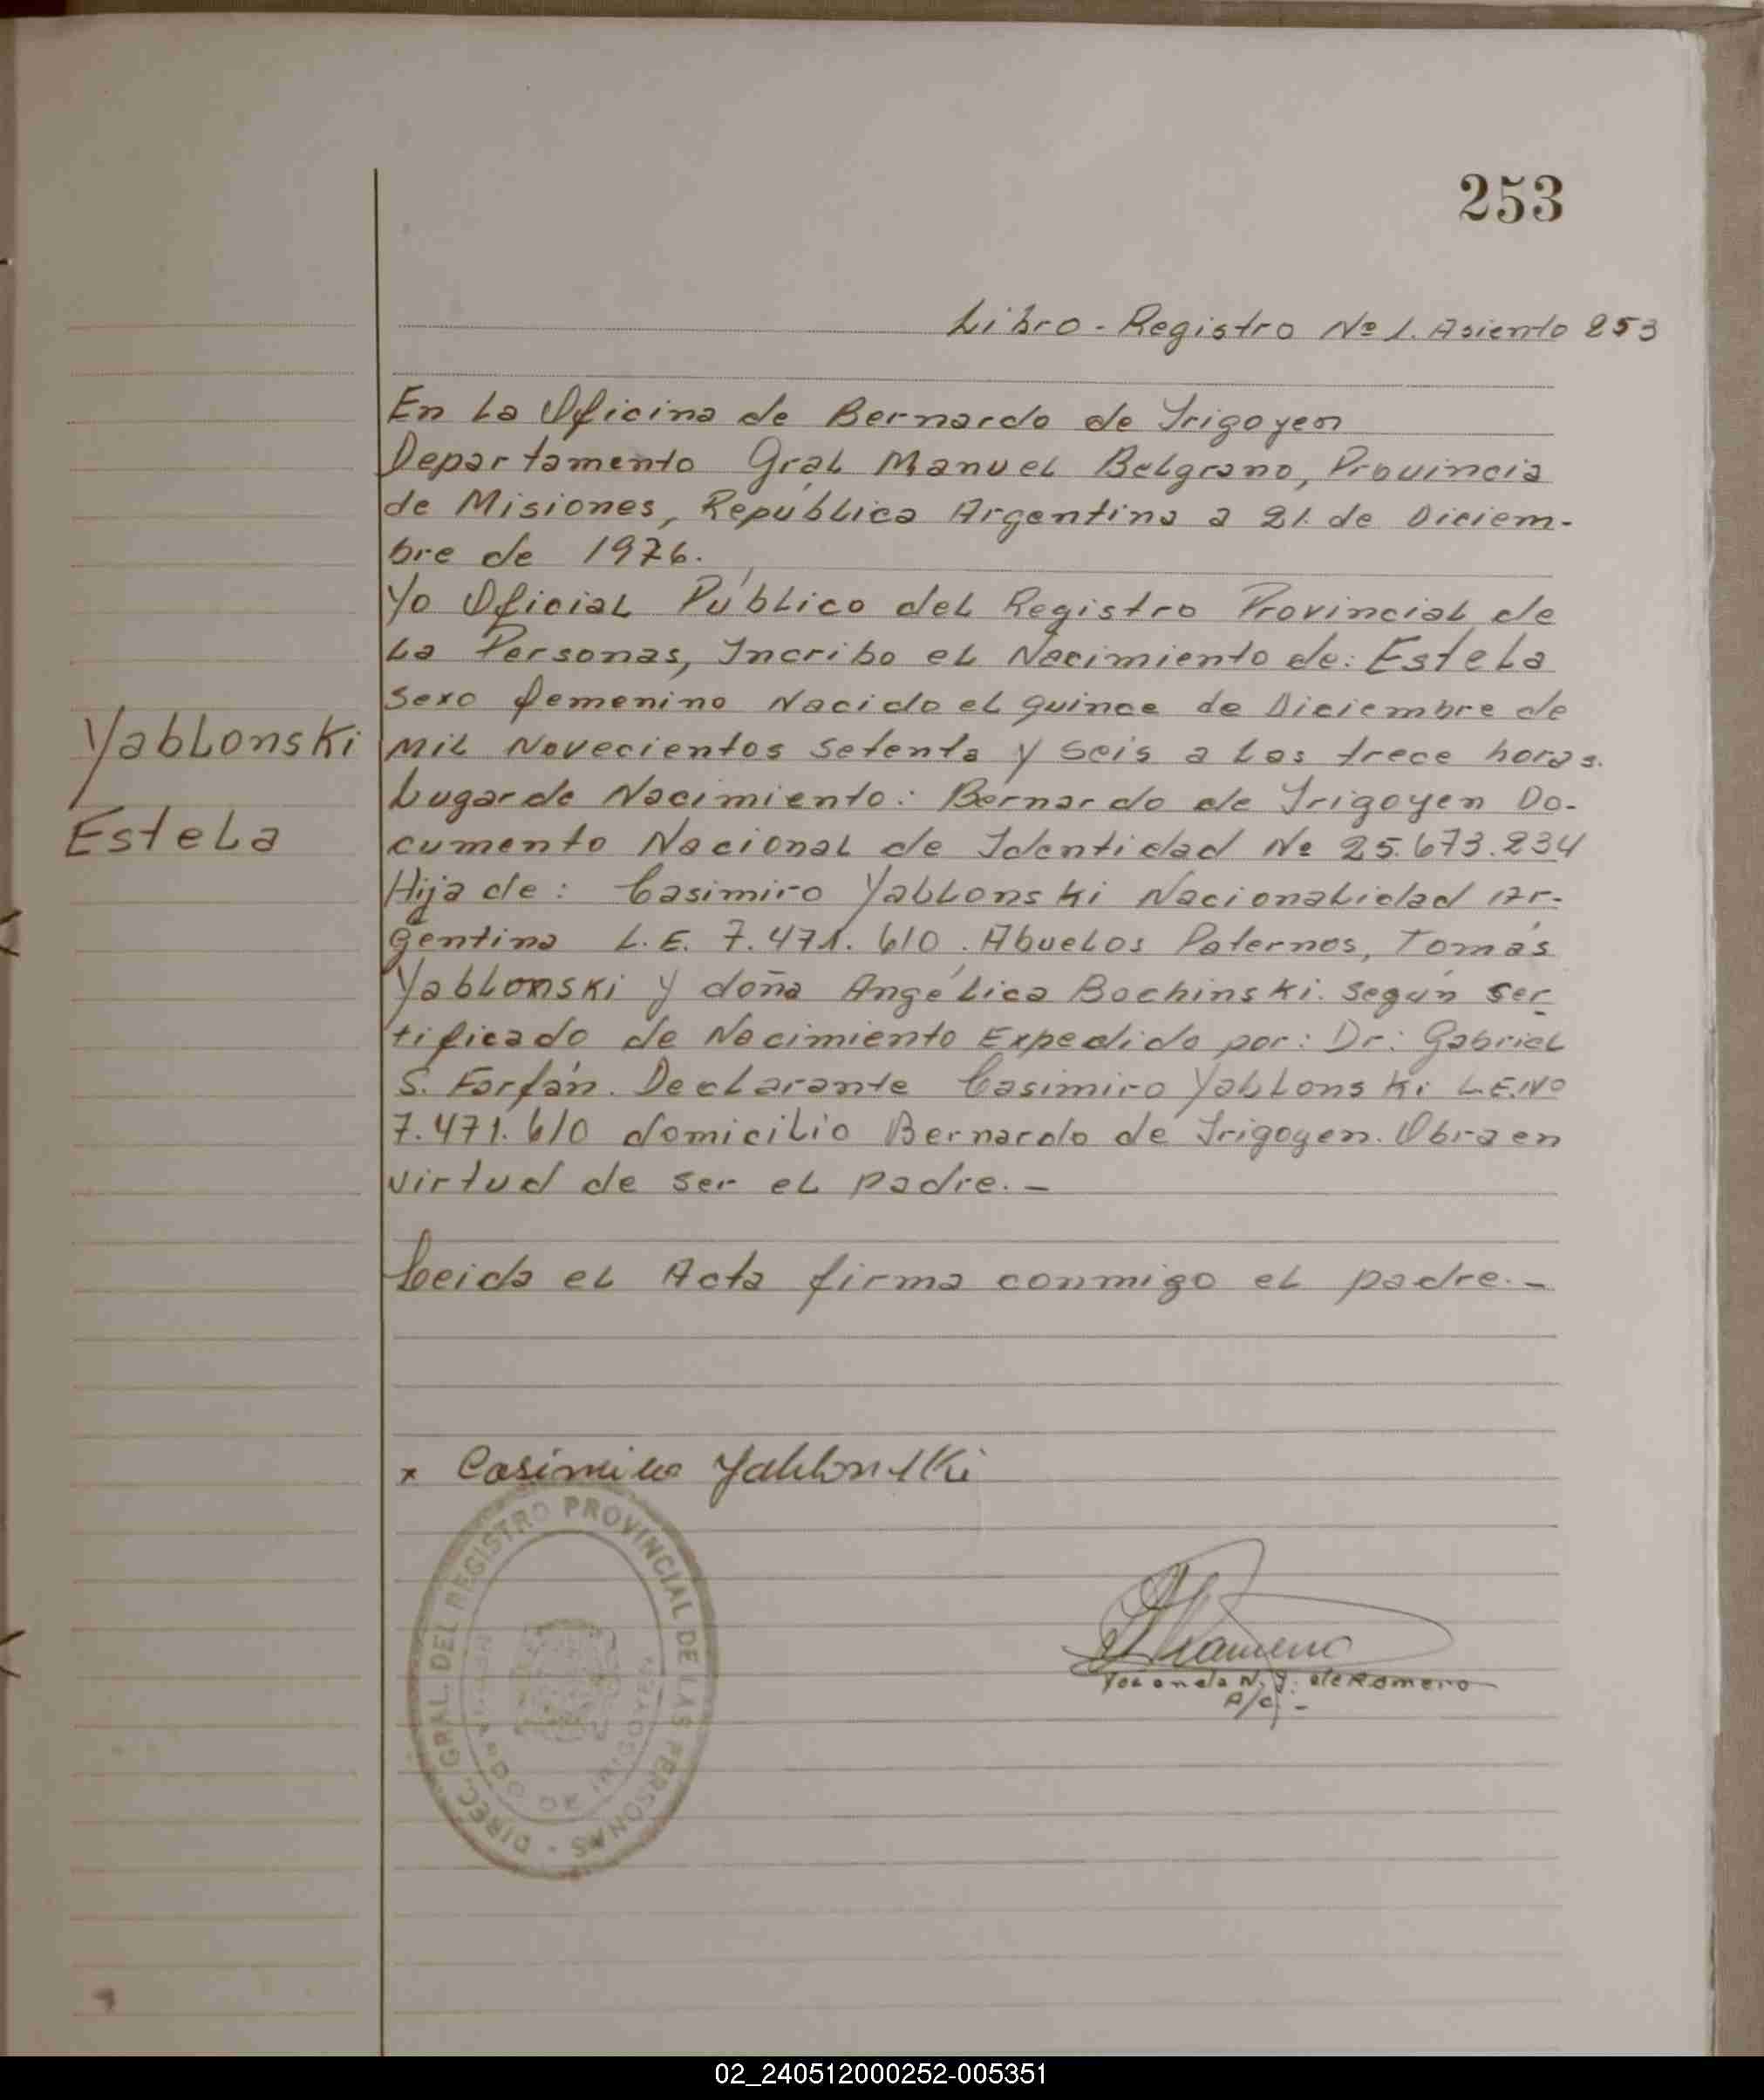 253
Libro - Registro Nº 1. Asiento 253
En La Oficina de Bernardo de Irigoyen
Departamento Gral Manuel Belgrano, Provincia
de Misiones, República Argentina a 21 de Diciem-
bre de 1976.
Yo Oficial Público del Registro Provincial de
La Personas, Incribo el Nacimiento de: Estela
Sexo femenino Nacido el quince de Diciembre de
Mil Novecientos Setenta y Seis a las trece horas.
Lugar de Nacimiento: Bernardo de Irigoyen Do-
cumento Nacional de Identidad Nº 25.673.234
Hija de: Casimiro Yablonski Nacionalidad Ar-
gentina L.E. 7.471.610. Abuelos Paternos, Tomás
Yablonski y doña Angélica Bochinski. Según Ser
tificado de Nacimiento Expedido por: Dr: Gabriel
S. Farfán. Declarante Casimiro Yablonski L.E.Nº
7.471.610 domicilio Bernardo de Irigoyen. Obra en
virtud de ser el padre. -
Leida el Acta firma conmigo el padre. -
Yablonski
Estela
x Casimiro Yablonski
DIREC. GRAL. DEL REGISTRO PROVINCIAL DE LAS PERSONAS
DE IRIGOYEN
N. J. de Romero
A/c -
02_240512000252-005351